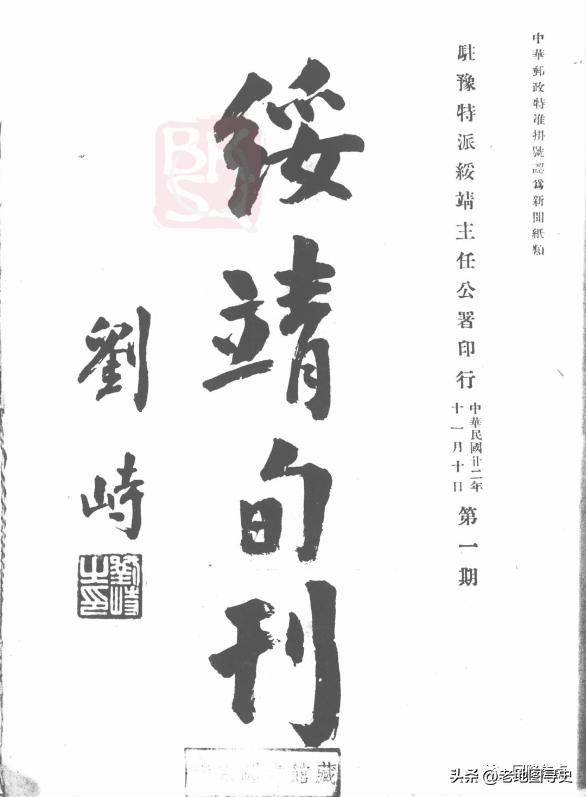 中華郵政特准掛號認為新聞紙類
駐豫特派綏靖主任公署印行
中華民國廿二年
十一月十日
第一期
綏靖旬刊
劉峙
劉峙之印
BK
藏
头条 @老地图寻史